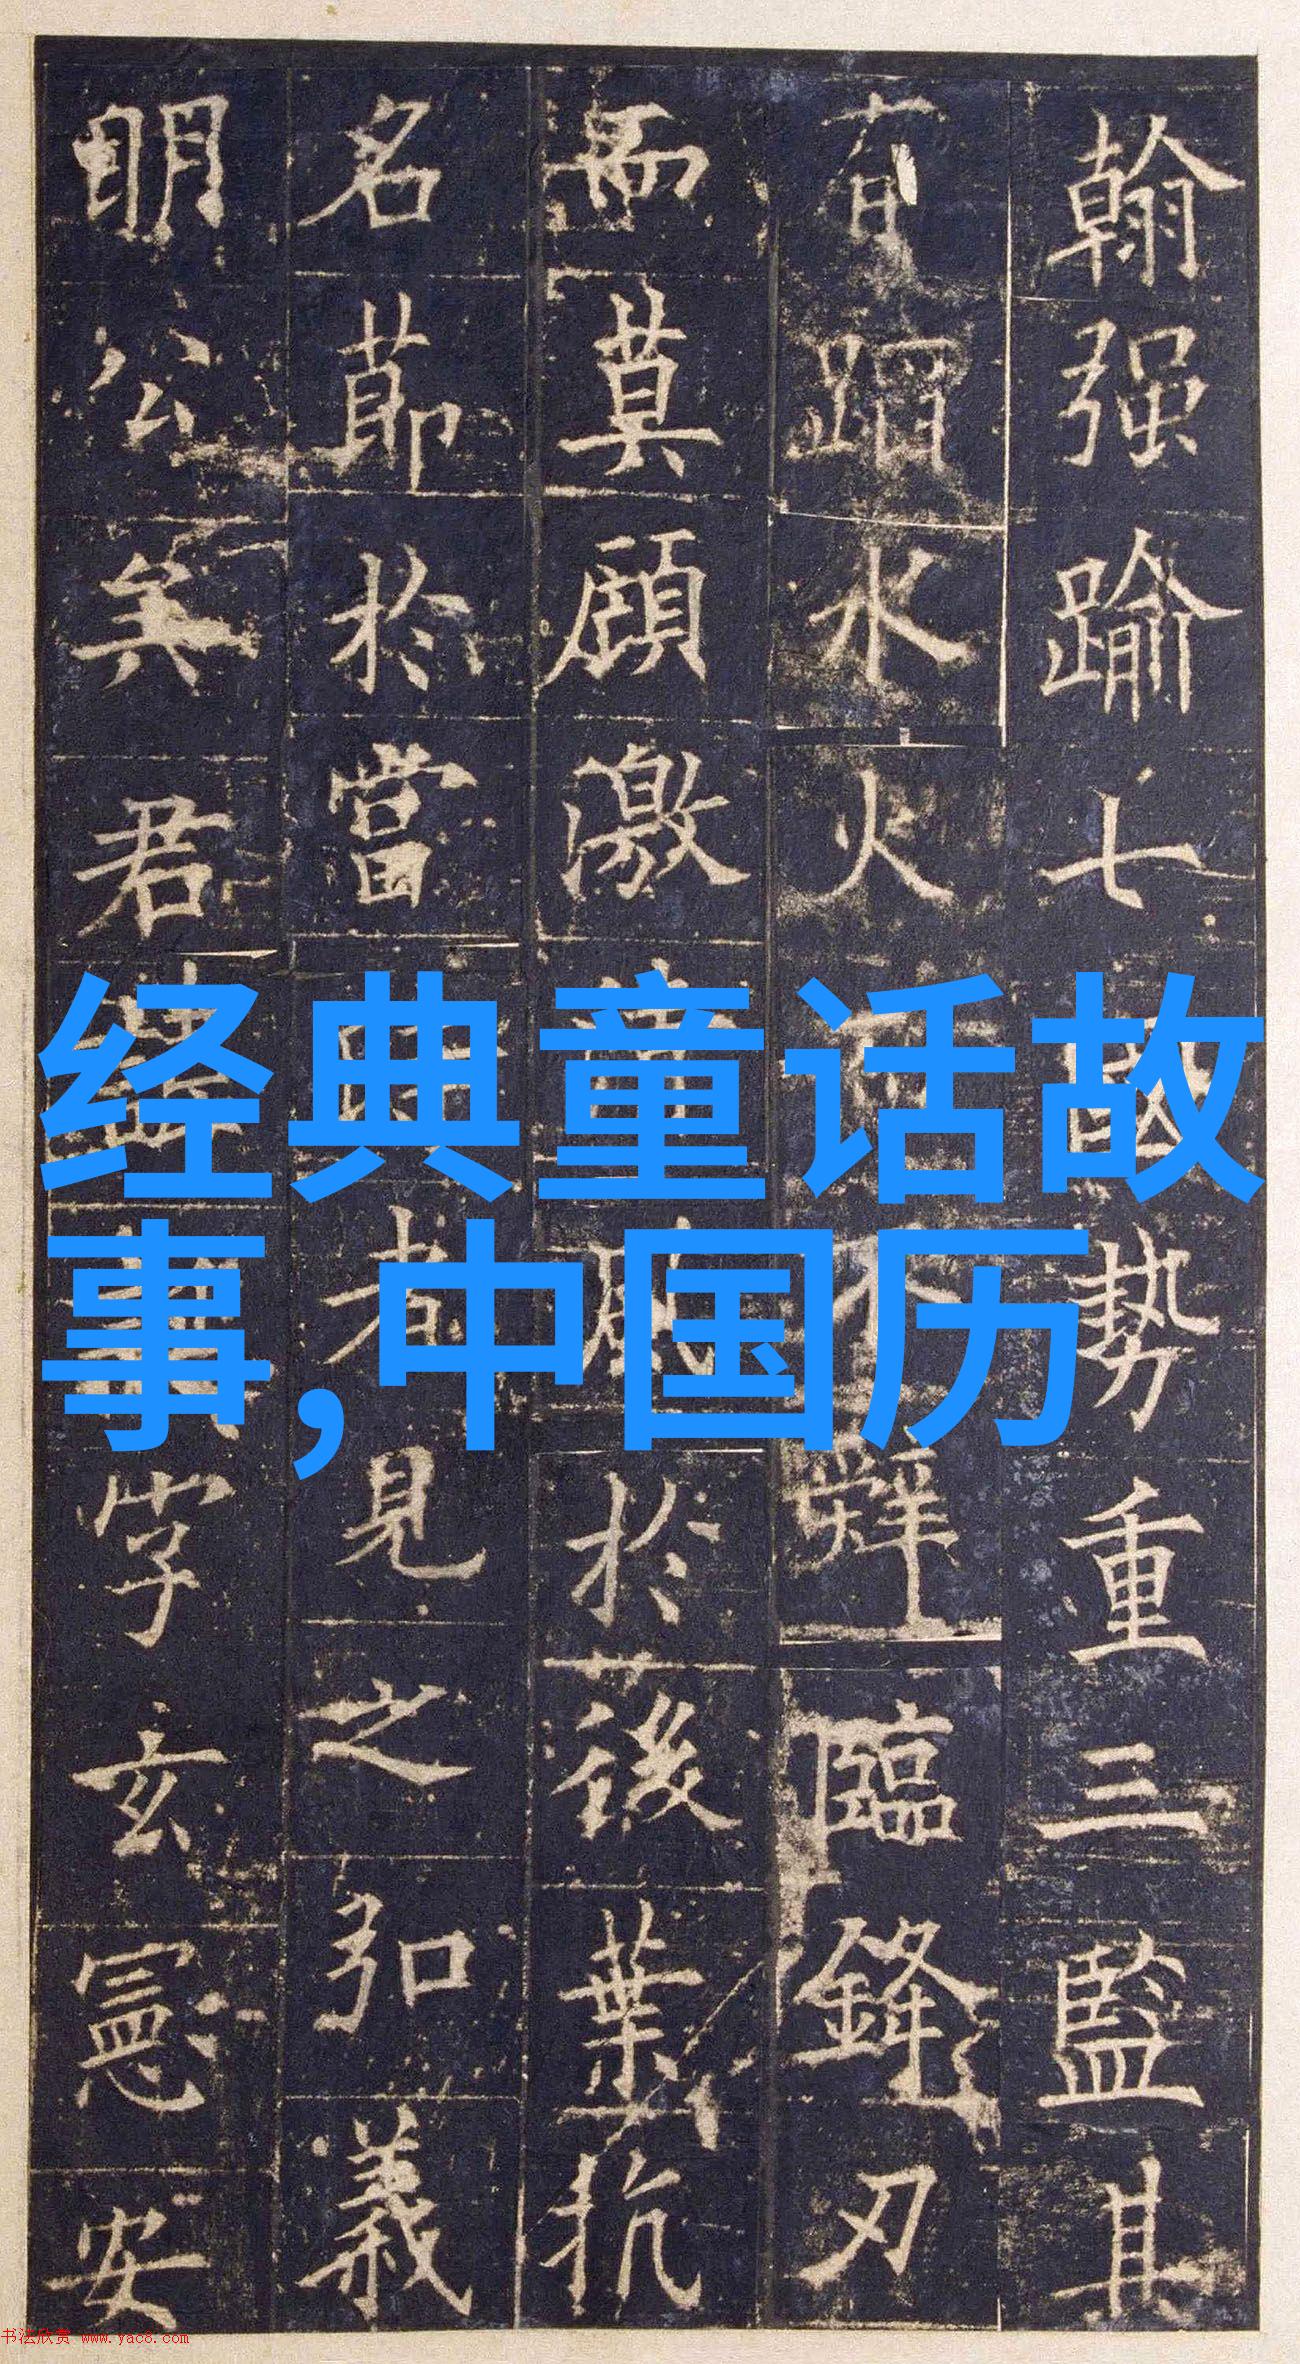 翰强踰七國勢重三監其
有蹈水火不辭臨鋒刃
而莫顧激風於後葉抗
名節於當者見之弘義
明公矣君字玄憲安
经典童话故
事,中国历
书法欣赏 www.yac8.com